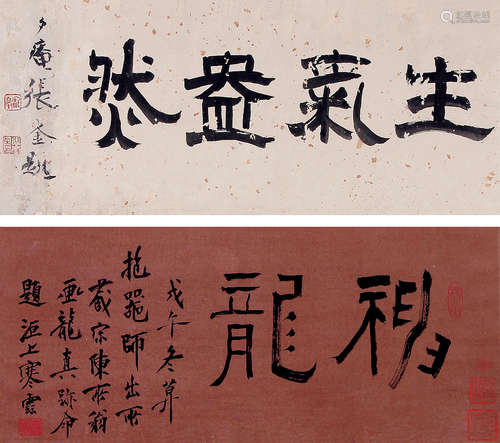 生氣盎然
夕庵張崟題
神龍
戊午冬
師出所
藏宋陳所翁
畫龍真跡命
題洹上寒雲